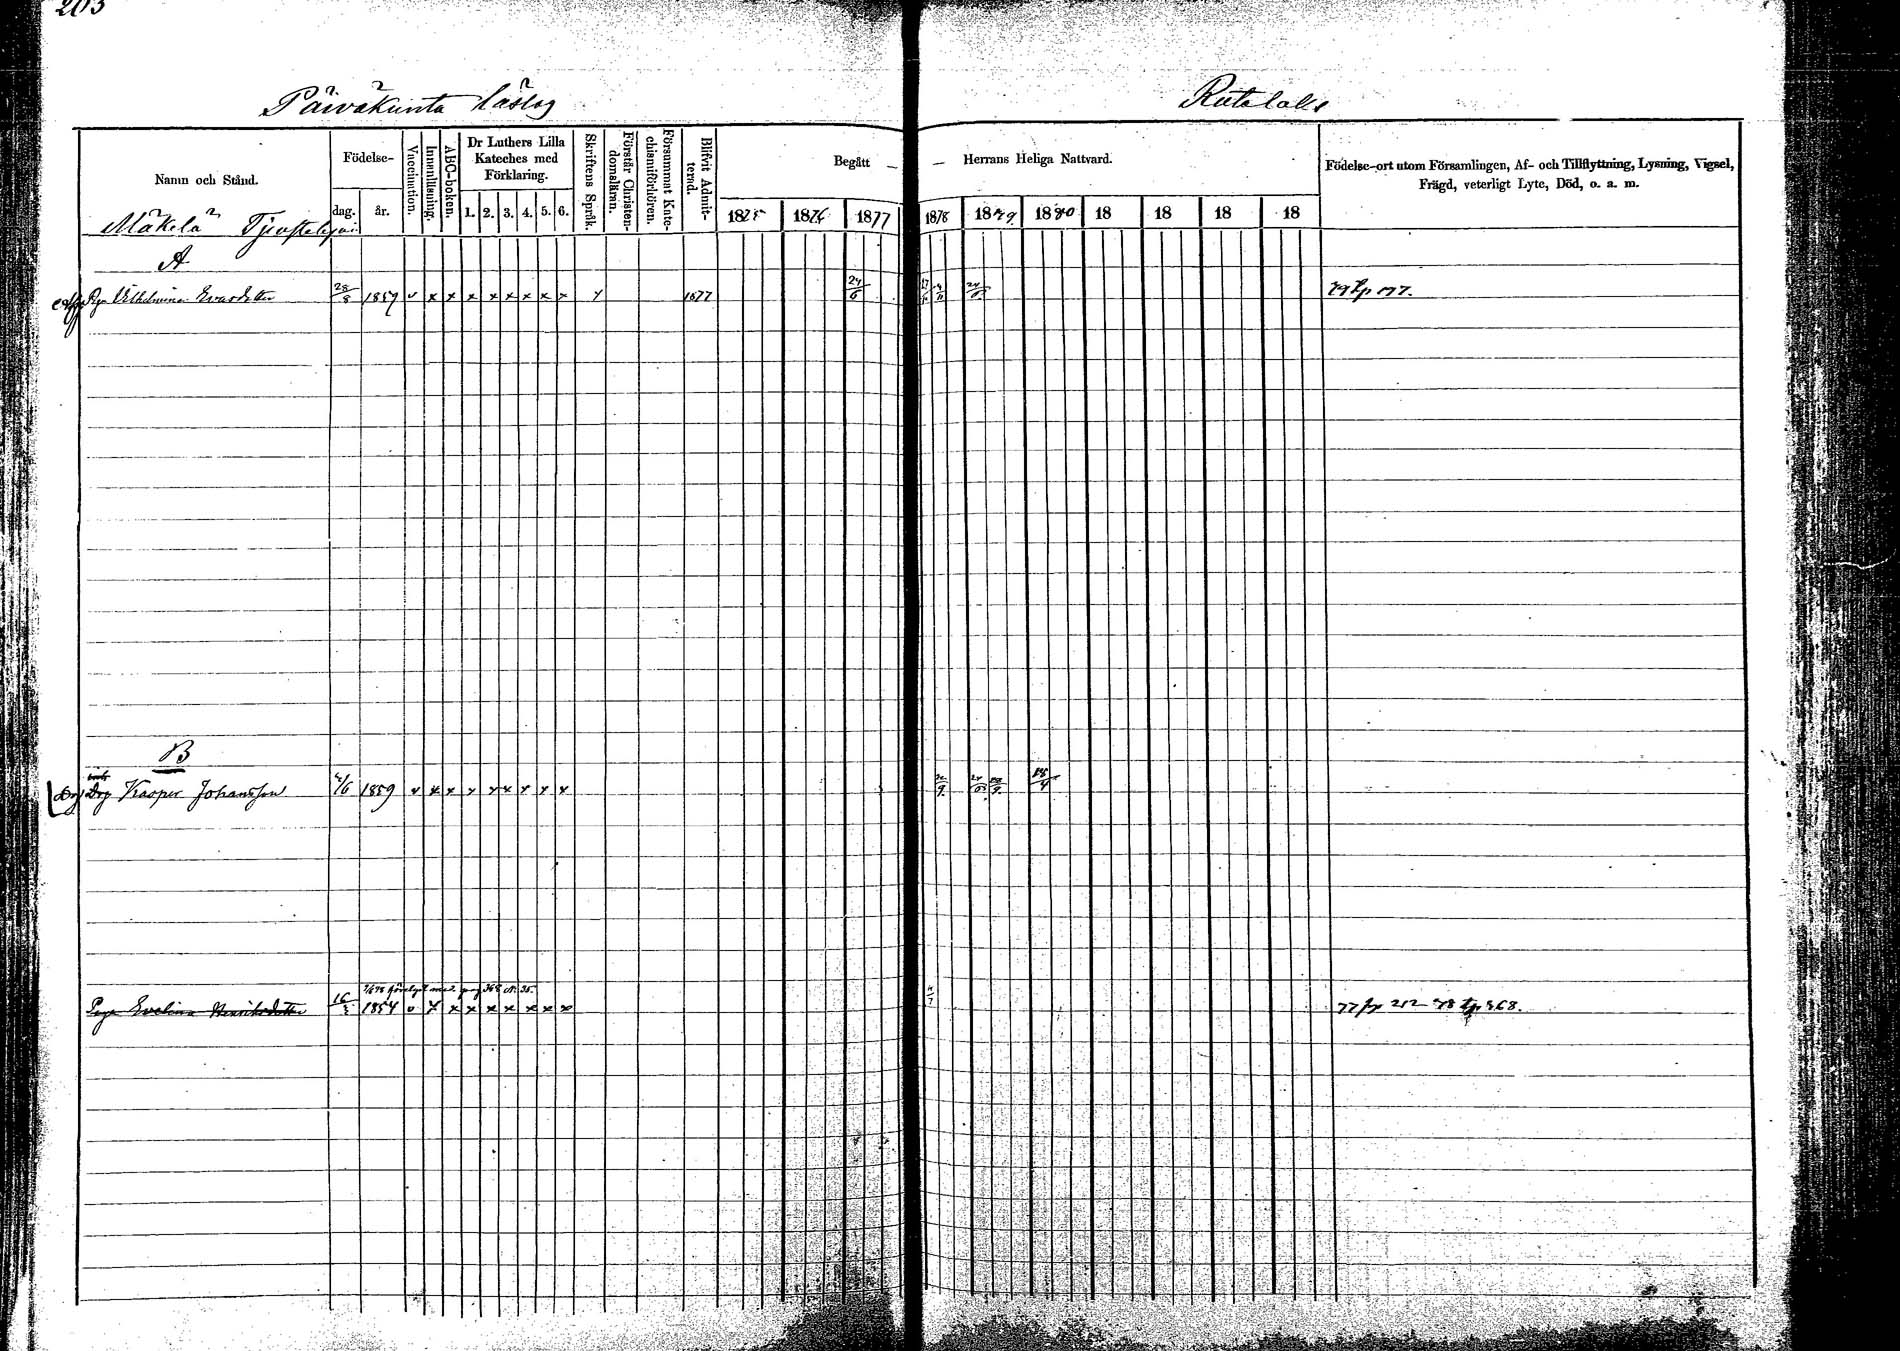 203
Päiväkunta Läslag Rutalaks
Namn och Stånd.
Födelse-
dag. år.
Vaccination.
Innanläsning.
ABC-boken.
Dr Luthers Lilla
Kateches med
Förklaring.
1. 2. 3. 4. 5. 6.
Skriftens Språk.
Förstår Christen-
domslaran.
Försummat Kate-
chismiförhören.
Blifvit Admit-
terad.
Begått — — Herrans Heliga Nattvard.
1875 1876 1877 1878 1879. 1880 18 18 18 18
Födelse-ort utom Församlingen, Af- och Tillflyttning, Lysning, Vigsel,
Frägd, veterligt Lyte, Död, o. a. m.
Mäkelä
A
Pga Vilhelmina Evasdotter 28/8 1857 v x x x x x x x x 1877 24/6
B
Drg Kasper Johansson 4/6 1859 v x x x x x x x x
Piga Evelina Henriksdotter 1854 v x x x x x x x x 77 fp 212 78 tp 368.